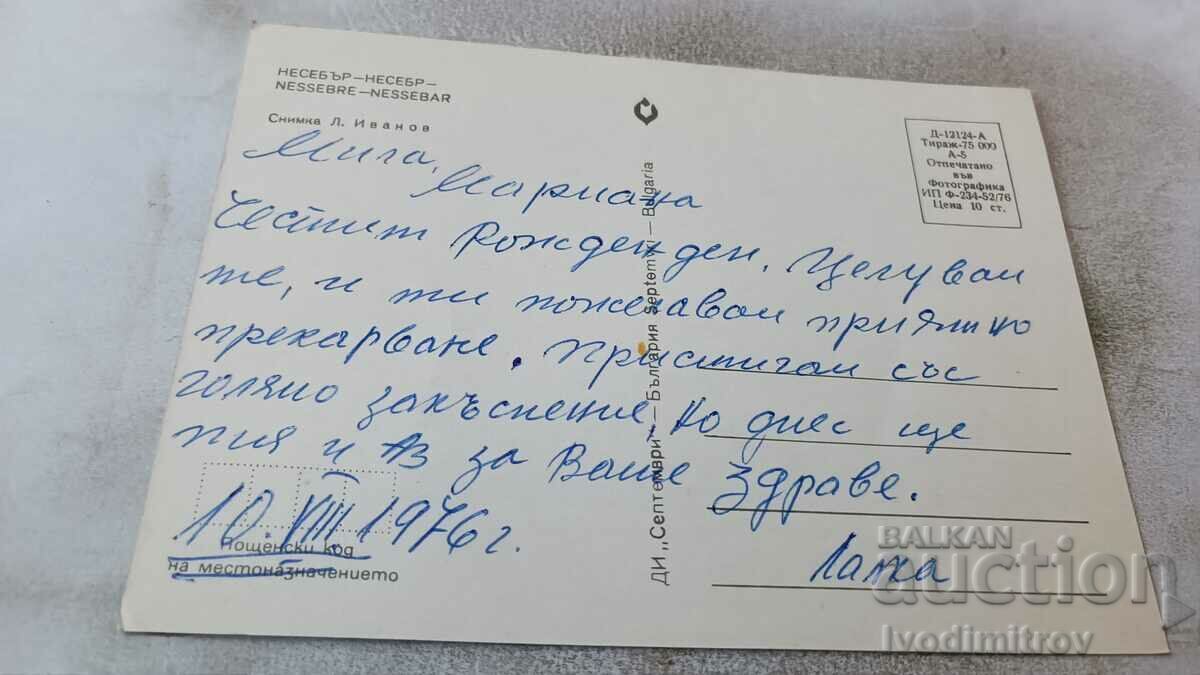 НЕСЕБЪР—НЕСЕБР—
NESSEBRE—NESSEBAR
Снимка Л. Иванов
Мила,
Мариана
Честит Рожден ден. Целувам
те, и ти пожелавам приятно
прекарване. Пристигам със
голямо закъснение, но днес ще
пия и аз за Ваше здраве.
10.VIII 1976г.
Пощенски код
на местоназначението
ДИ „Септември" — България Septemvri — Bulgaria
Д-12124-А
Тираж-75 000
А-5
Отпечатано
във
Фотографика
ИП Ф-234-52/76
Цена 10 ст.
BALKAN
auction
Ivodimitrov